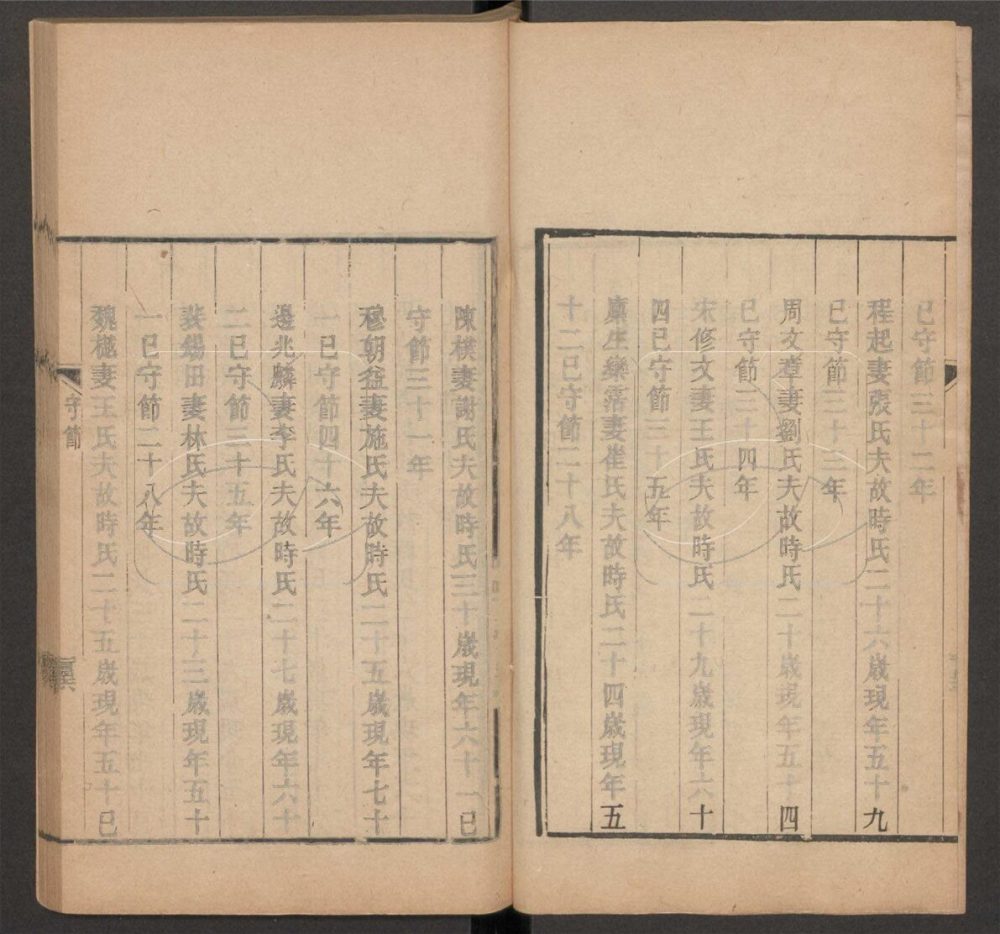 已守節三十二年
程起妻張氏夫故時氏二十六歲現年五十九
已守節三十三年
周文章妻劉氏夫故時氏二十歲現年五十四
已守節三十四年
宋修文妻王氏夫故時氏二十九歲現年六十
四已守節三十五年
廩生欒落妻崔氏夫故時氏二十四歲現年五
十二已守節二十八年
陳樸妻謝氏夫故時氏三十歲現年六十一已
守節三十一年
穆朝益妻施氏夫故時氏二十五歲現年七十
一已守節四十六年
邊兆麟妻李氏夫故時氏二十七歲現年六十
二已守節三十五年
裴錫田妻林氏夫故時氏二十三歲現年五十
一已守節二十八年
魏樾妻王氏夫故時氏二十五歲現年五十已
守節